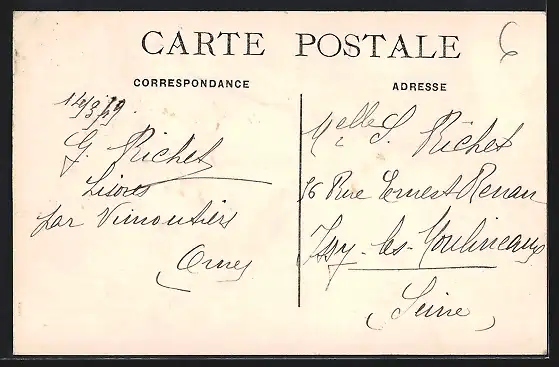 CARTE POSTALE
CORRESPONDANCE
14/3/19.
G. Richet
Lisores
par Vimoutiers
(Orne)
ADRESSE
Melle S. Richet
56 Rue Ernest Renan
Issy-les-Moulineaux
(Seine)